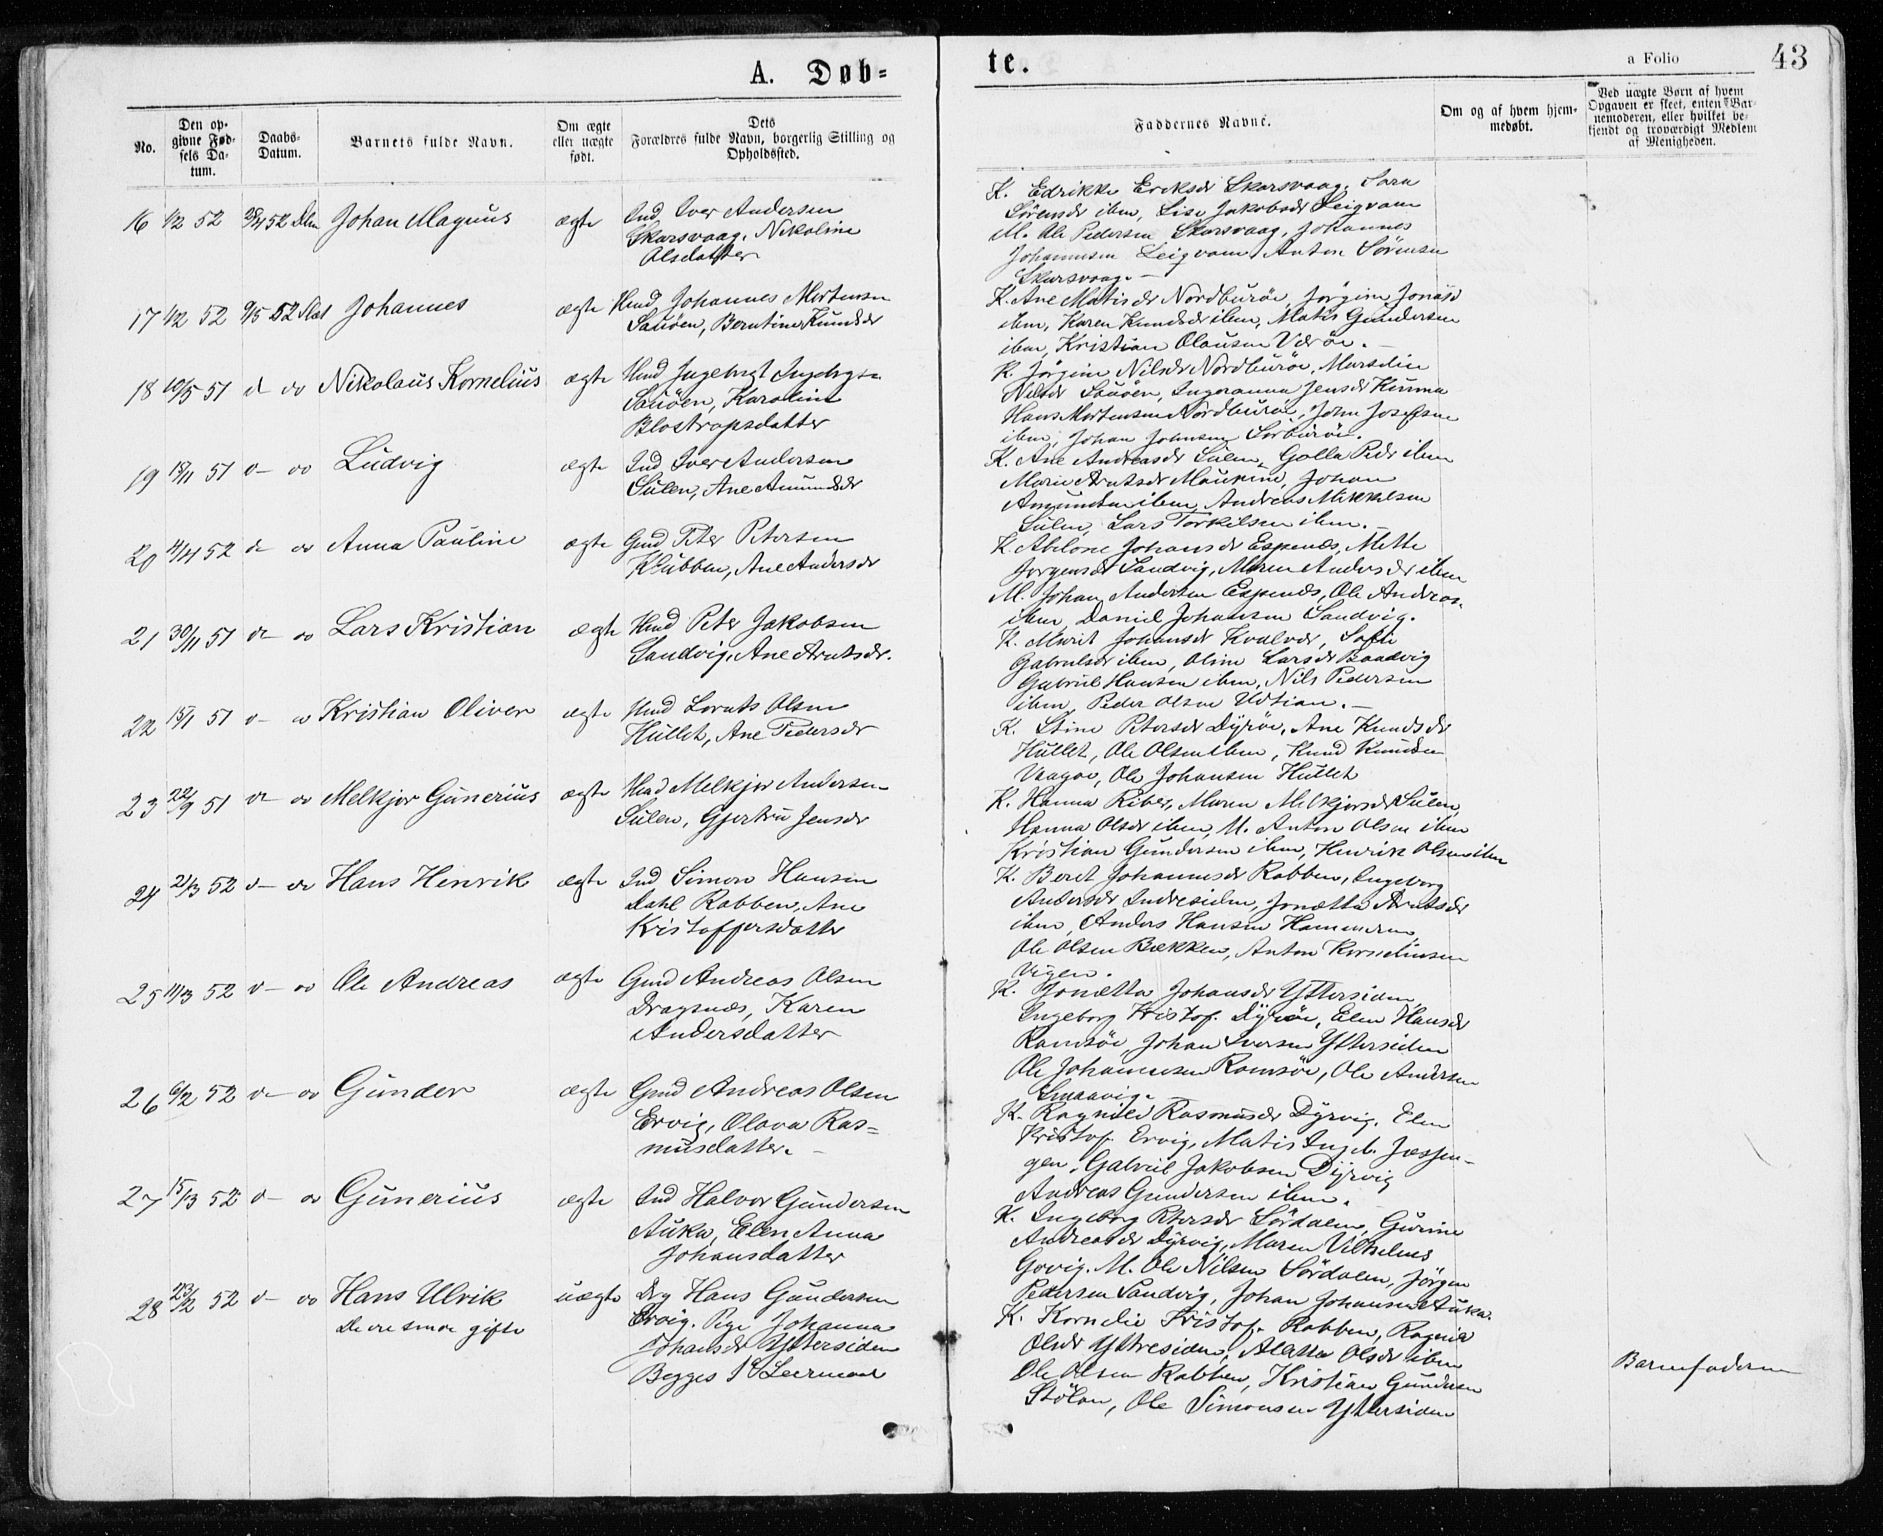 A. Døb=
te.
a Folio
43
No.
Den op-
givne Fød-
sels Da-
tum.
Daabs-
Datum.
Barnets fulde Navn.
Om ægte
eller uægte
født.
Dets
Forældres fulde Navn, borgerlig Stilling og
Opholdssted.
Faddernes Navne.
Om og af hvem hjem-
medøbt.
Ved uægte Børn af hvem
Opgaven er skeet, enten Bar-
nemoderen, eller hvilket be-
kjendt og troværdigt Medlem
af Menigheden.
16 1/2 52 Johan Magnus ægte Ind Iver Andersen
Skarsvaag, Nikoline
Olsdatter
K. Edrikke Eriksdr Skarsvaag, Sara
Sørensdr ibm, Lise Jakobsdr Leigvam
M. Ole Pedersen Skarsvaag, Johannes
Johannesen Leigvam, Anton Sørensen
Skarsvaag.
17 1/2 52 9/5 52 Johannes ægte Hmd Johannes Mortensen
Sauøen, Berntine Knudsdr
K. Ane Matisdr Nordburøe, Jørgine Jonasd
ibm, Karen Knudsdr ibm, Matis Gundersen
ibm, Kristian Olausen Værøe.
18 10/5 51 d do Nikolaus Kornelius ægte Hmd Ingebrigt
Sauøen, Karoline
Blostropsdatter
K. Jørgine Nilsdr Nordburøe, Marselie
Nilsdr Sauøen, Ingeranna Jensdr Kinna
Hans Mortensen Nordburøe, John Josefsen
ibm, Johan Johnsen Sørburøe.
19 18/11 51 d– do Ludvig ægte Ind Iver Andersen
Sulen, Ane Amundsdr
K. Ane Andreasdr Sulen, Golla Pedr ibm
Marie Arntsdr Mausund, Johan
Amundsen ibm, Andreas Mikkelsen
Sulen, Lars Torkilsen ibm.
20 4/4 52 d– do Anna Pauline ægte Gmd Peter Petersen
Klubben, Ane Andersdr
K. Abelone Johansdr Espenæs, Mette
Jørgensdr Sandvig, Maren Andersdr ibm
M. Johan Andersen Espenæs, Ole Andreas.
ibm, Daniel Johansen Sandvig.
21 30/11 51 d– do Lars Kristian ægte Hmd Peter Jakobsen
Sandvig, Ane Arntsdr.
K. Marit Johansdr Kvalvær, Sofie
Gabrielsdr ibm, Oline Larsdr Baadvig
Gabriel Hansen ibm, Nils Pedersen
ibm, Peder Olsen Udtian.
22 15/1 51 d– do Kristian Oliver ægte Hmd Lornts Olsen
Hullet, Ane Pedersdr
K. Stine Petersdr Dyrøe, Ane Knudsdr
Hullet, Ole Olsen ibm, Knud Knudsen
Vaagøe, Ole Johansen Hullet
23 22/9 51 d– do Melkjor Gunerius ægte Hmd Melkjor Andersen
Sulen, Gjertru Jensdr
K. Hanna Riber, Maren Melkjorsdr Sulen,
Hanna Olsdr ibm, M. Anton Olsen ibm
Kristian Gundersen ibm, Henrik Olsen ibm
24 21/3 52 d– do Hans Henrik ægte Ind Simon Hansen
Dahl Rabben, Ane
Kristoffersdatter
K. Beret Johannesdr Rabben, Ingeborg
Andersdr Indresiden, Jonetta Arntsdr
ibm, Anders Hansen Hammeren
Ole Olsen Bækken, Anton Korneliussen
Vigen.
25 14/3 52 d– do Ole Andreas ægte Gmd Andreas Olsen
Dragsnæs, Karen
Andersdatter
K. Jonetta Johansdr Yttersiden
Ingeborg Kristof. Dyrøe, Elen Hansdr
Ramsøe, Johan Iversen Yttersiden
Ole Johannesen Ramsøe, Ole Andersen
Smaavig.
26 6/2 52 d– do Gunder ægte Gmd Andreas Olsen
Ervig, Olava Ras=
musdatter.
K. Ragnild Rasmusdr Dyrvig, Elen
Kristof. Ervig, Matis Ingeb.
Gabriel Jakobsen Dyrvig
Andreas Gundersen ibm.
27 15/3 52 d– do Gunerius ægte Ind Halvor Gundersen
Auka, Elen Anna
Johansdatter
K. Ingeborg Petersdr Sørdalen, Gurine
Andreasdr Dyrvig, Maren Vilhelms
M. Ole Nilsen Sørdalen, Jørgen
Pedersen Sandvig, Johan Johansen Auka.
28 23/2 52 d– do Hans Ulrik uægte Drg Hans Gundersen
De ere senere gifte
Ervig. Pige Johanna
Johansdr Yttersiden
Begges 1ste Leiermaal
K. Kornelie Kristof. Rabben, Ragnil
Olsdr Yttresiden, Aletta Olsdr ibm
Ole Olsen Rabben, Kristian Gundersen
Stølan, Ole Simonsen Yttersiden
Barnefaderen